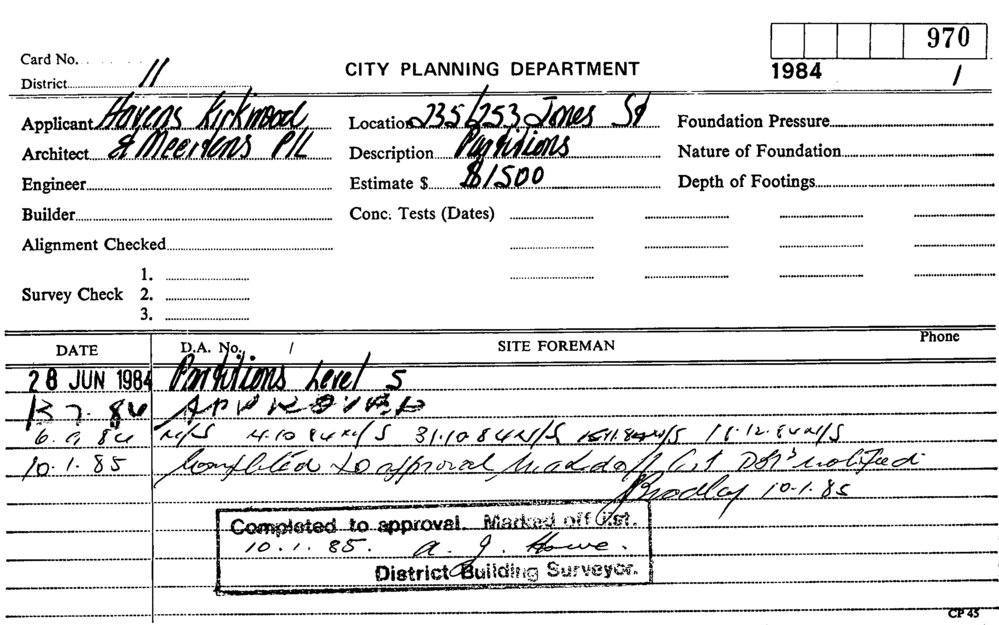 970
Card No.
CITY PLANNING DEPARTMENT
1984 /
District 11
Applicant Havens Kirkwood
Location 235/253 Jones St
Foundation Pressure
Architect & Meertens P/L
Description Partitions
Nature of Foundation
Engineer
Estimate $ $1500
Depth of Footings
Builder
Conc. Tests (Dates)
Alignment Checked
1.
Survey Check 2.
3.
DATE D.A. No. / SITE FOREMAN Phone
28 JUN 1984 Partitions Level 5
13 7. 84 APPROVED
6. 9. 84 N/S 4.10 84 N/S 31.10 84 N/S 15.11.84 N/S 18.12.84 N/S
10.1.85 Completed to approval marked off list notified
Bradley 10.1.85
Completed to approval. Marked off list.
10.1.85. A. J. Howe.
District Building Surveyor.
CP 45